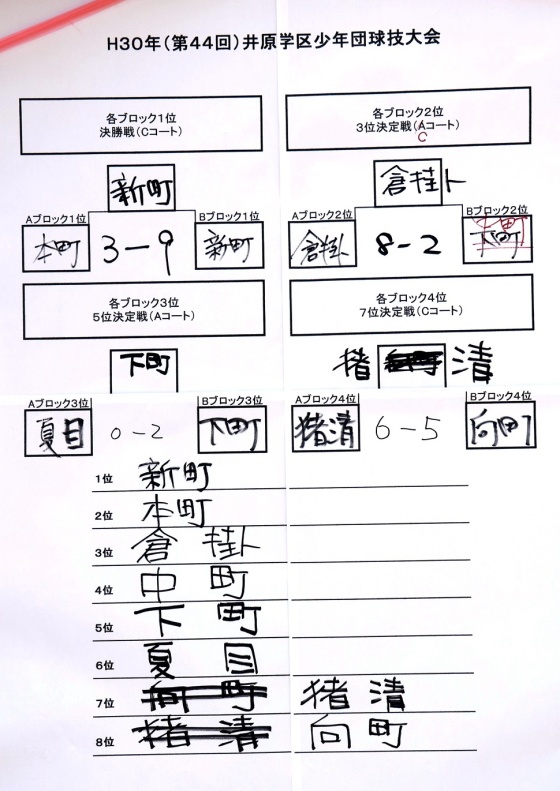 H30年(第44回)井原学区少年団球技大会
各ブロック1位
決勝戦(Cコート)
各ブロック2位
3位決定戦(Aコート)
C
新町
倉掛
Aブロック1位
Bブロック1位
Aブロック2位
Bブロック2位
本町 3-9 新町
倉掛 8-2
各ブロック3位
5位決定戦(Aコート)
各ブロック4位
7位決定戦(Cコート)
下町
猪 清
Aブロック3位
Bブロック3位
Aブロック4位
Bブロック4位
夏目 0-2 下町
猪清 6-5 向町
1位 新町
2位 本町
3位 倉掛
4位 中町
5位 下町
6位 夏目
7位 向町 猪清
8位 猪清 向町